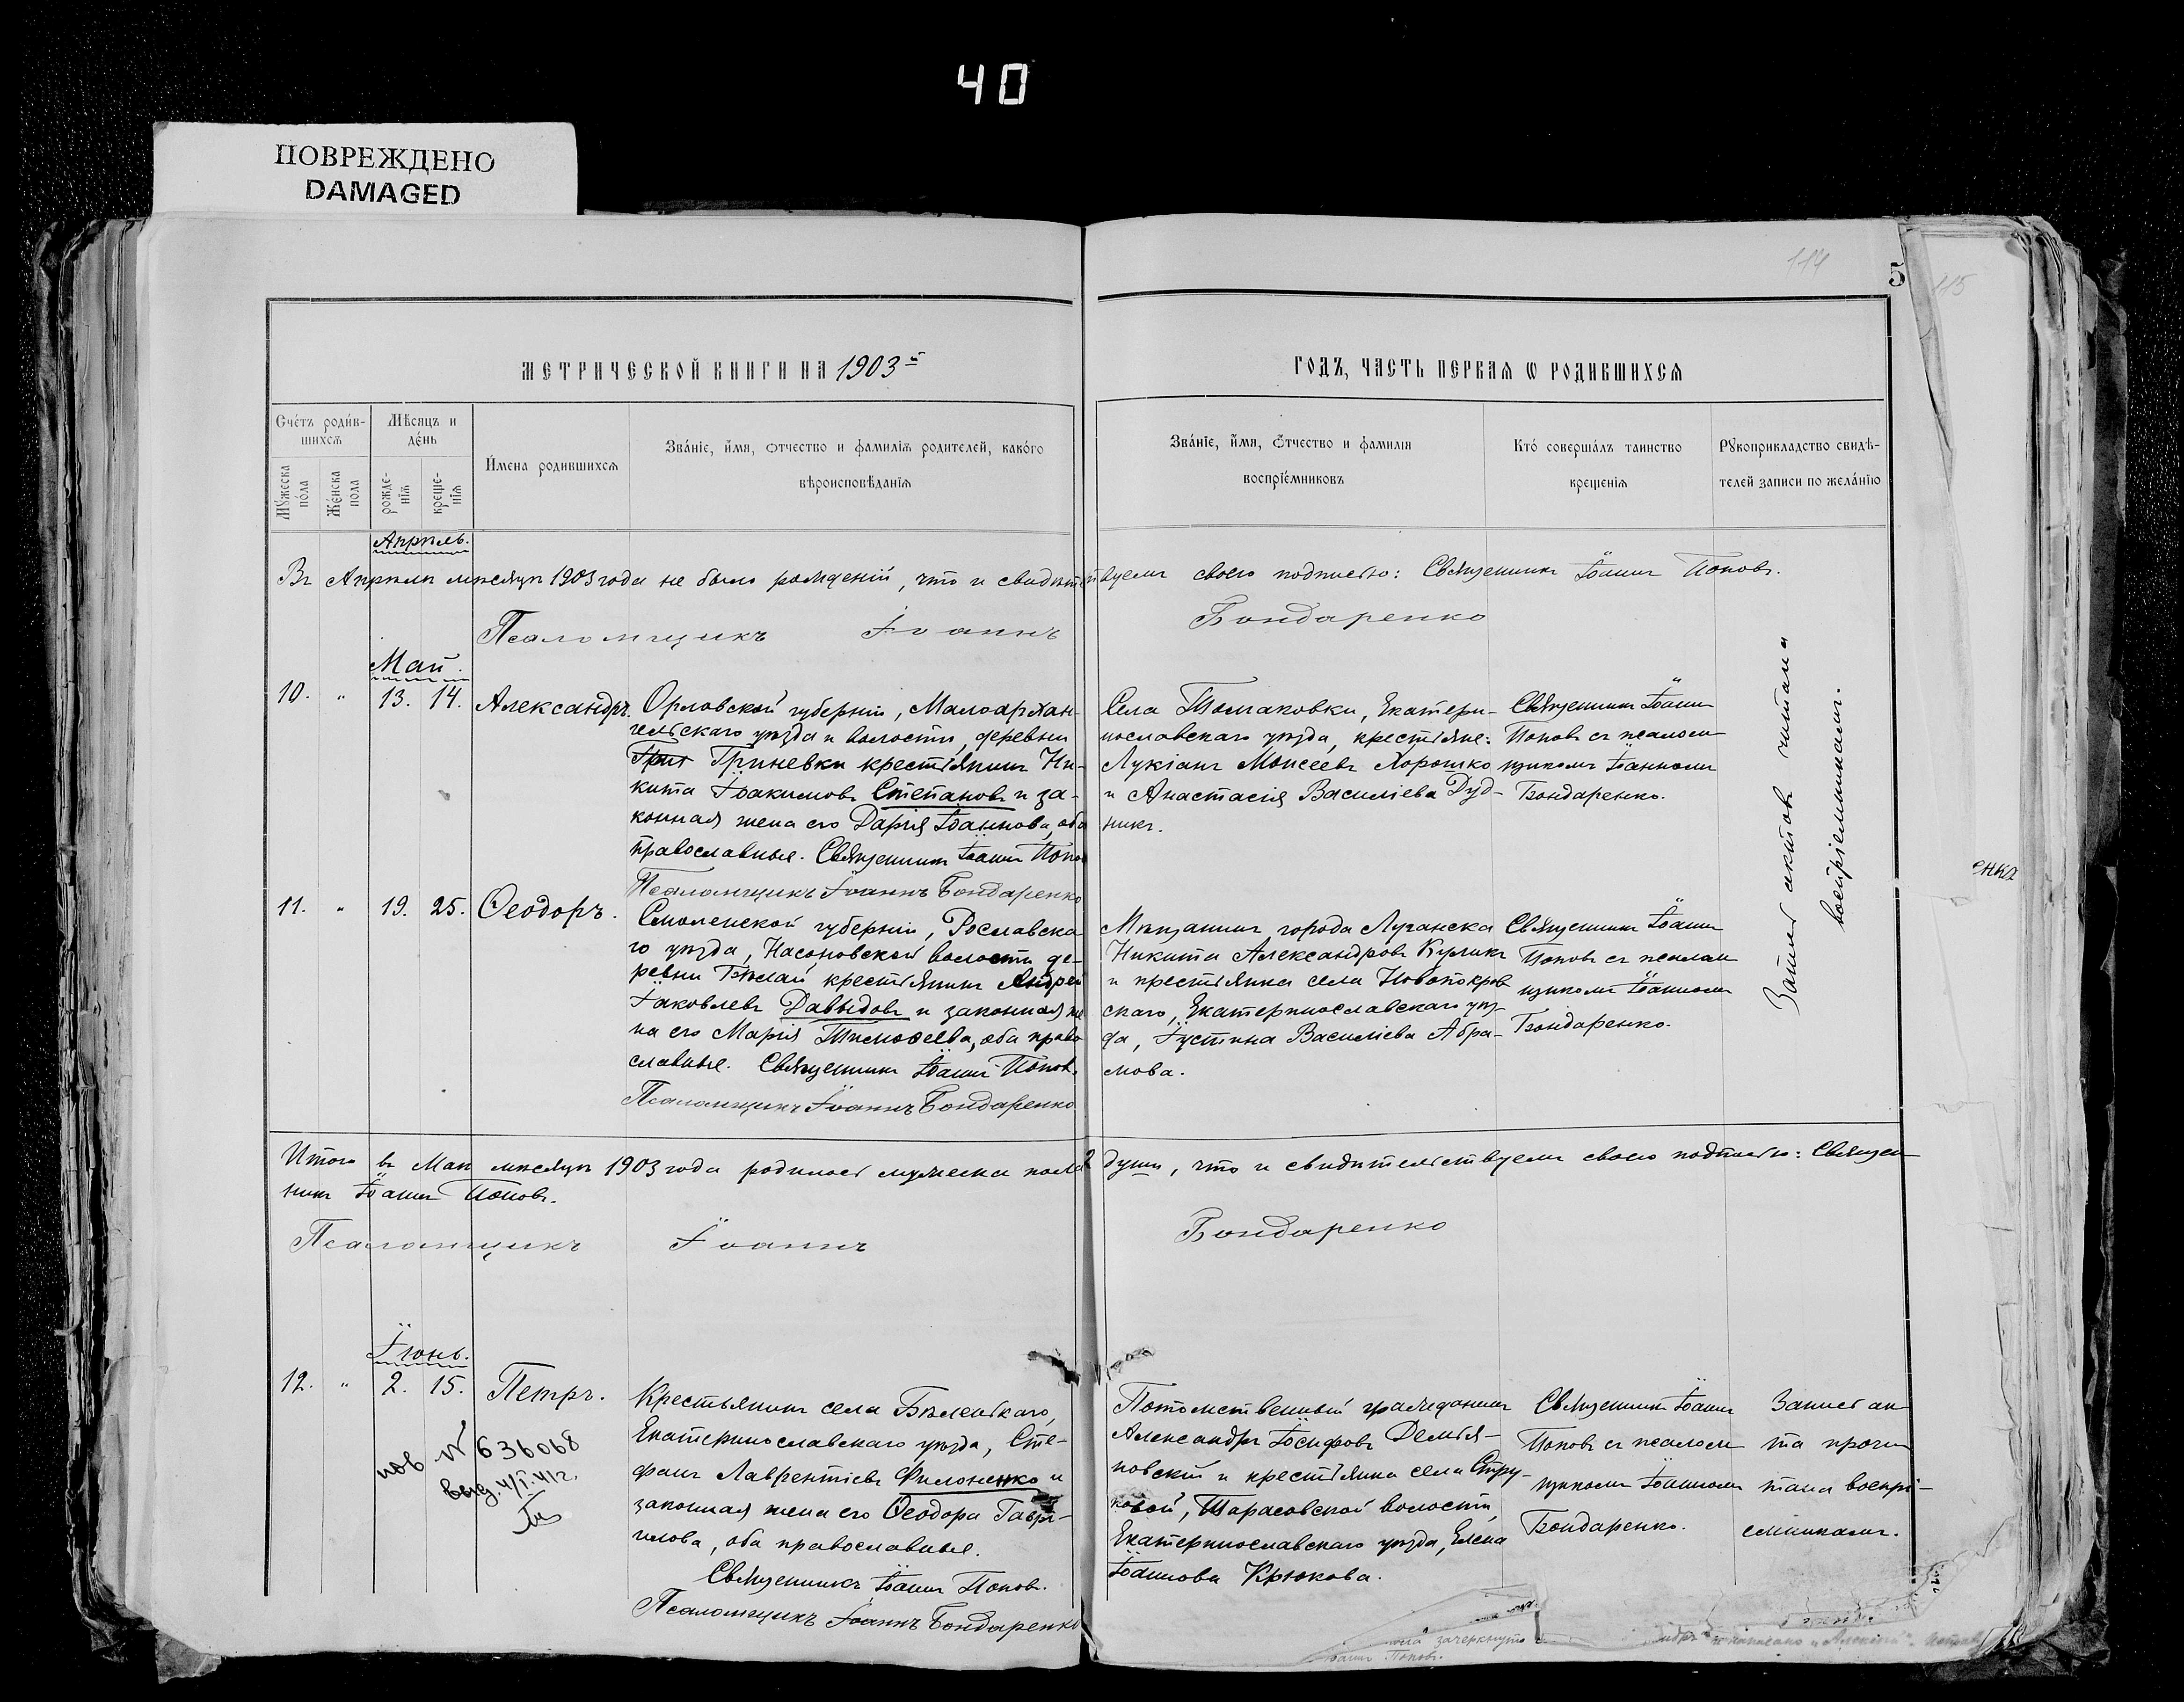 40
ПОВРЕЖДЕНО
DAMAGED
114
5
115
МЕТРИЧЕСКОЙ КНИГИ НА 1903й
ГОДЪ, ЧАСТЬ ПЕРВАЯ Ѡ РОДИВШИХСЯ
Счéтъ роди́в-
шихсѧ
Мѣсяцъ и
дéнь
Мꙋ́жеска
пóла
Жéнска
пола
рожде-
нїѧ
креще-
нїѧ
И́мена родившихсѧ
Зва́нїе, и́мя, ѻтчество и фамилїѧ родителей, како́го
вѣроисповѣданїѧ
Зва́нїе, и́мя, ѻтчество и фамилїя
воспрїе́мниковъ
Кто́ соверша́лъ таинство
крещенїѧ
Рꙋкоприкладство свидѣ-
телей записи по жела́нїю
Апрѣль.
Въ Апрѣлѣ мѣсяцѣ 1903 года не было рожденій, что и свидѣтельствуемъ своею подписью: Священникъ Іоаннъ Поповъ.
Псаломщикъ Іоаннъ Бондаренко
Май.
10. " 13. 14. Александръ.
Орловской губерніи, Малоархан-
гельскаго уѣзда и волости, деревни
Гриневки крестьянинъ Ни-
кита Іоакимовъ Степановъ и за-
конная жена его Дарія Іоаннова, оба
православные. Священникъ Іоаннъ Попов
Псаломщикъ Іоаннъ Бондаренко
Села Томаковки, Екатери-
нославскаго уѣзда, крестьяне:
Лукіанъ Моисеевъ Хорошко
и Анастасія Василіева Дуд-
никъ.
Священникъ Іоаннъ
Поповъ съ псалом-
щикомъ Іоанномъ
Бондаренко.
Записъ актовъ читана
воспріемникамъ.
11. " 19. 25. Ѳеодоръ.
Смоленской губерніи, Рославска
го уѣзда, Насоновской волости де-
ревни Бѣлай крестьянинъ Андрей
Іаковлевъ Давыдовъ и законная же
на его Марія Тимоѳеева, оба право
славные. Священникъ Іоаннъ Попов.
Псаломщикъ Іоаннъ Бондаренко
Мѣщанинъ города Луганска
Никита Александровъ Куликъ
и крестьянка села Новопокров
скаго, Екатеринославскаго уѣз-
да, Іустина Василіева Абра-
мова.
Священникъ Іоаннъ
Поповъ съ псалом
щикомъ Іоанномъ
Бондаренко.
енко
Итого въ Маѣ мѣсяцѣ 1903 года родилось мужеска пола 2 души, что и свидѣтельствуемъ своею подписью: Священ-
никъ Іоаннъ Поповъ.
Псаломщикъ Іоаннъ Бондаренко
Іюнь.
12. " 2. 15. Петръ.
пов № 636068
выд. 4/I 41г.
Крестьянинъ села Бѣленькаго,
Екатеринославскаго уѣзда, Сте-
фанъ Лаврентіевъ Филоненко и
законная жена его Ѳеодора Гаврі-
илова, оба православные.
Священникъ Іоаннъ Поповъ.
Псаломщикъ Іоаннъ Бондаренко
Потомственный гражданинъ
Александръ Іосифовъ Демья-
новскій и крестьянка села Стру-
ковой, Тарасовской волости,
Екатеринославскаго уѣзда, Елена
Іоаннова Крюкова.
Священникъ Іоаннъ
Поповъ съ псалом
щикомъ Іоанномъ
Бондаренко.
Записъ ак
та прочи
тана воспрі-
емникамъ.
зачеркнуто
Іоаннъ Поповъ.
написано „Алексій"